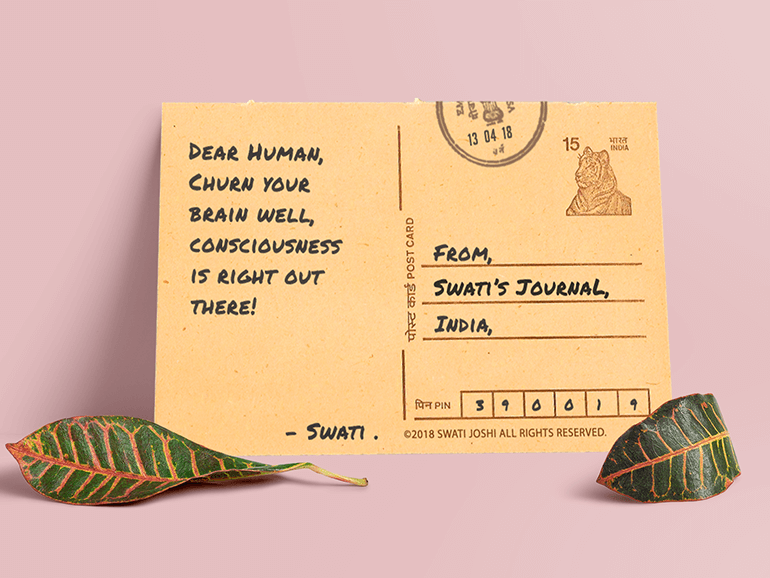 DEAR HUMAN,
CHURN YOUR
BRAIN WELL,
CONSCIOUSNESS
IS RIGHT OUT
THERE!
- SWATI .
पोस्ट कार्ड POST CARD
13 04 18
15 भारत
INDIA
FROM,
SWATI'S JOURNAL,
INDIA,
पिन PIN 3 9 0 0 1 9
©2018 SWATI JOSHI ALL RIGHTS RESERVED.